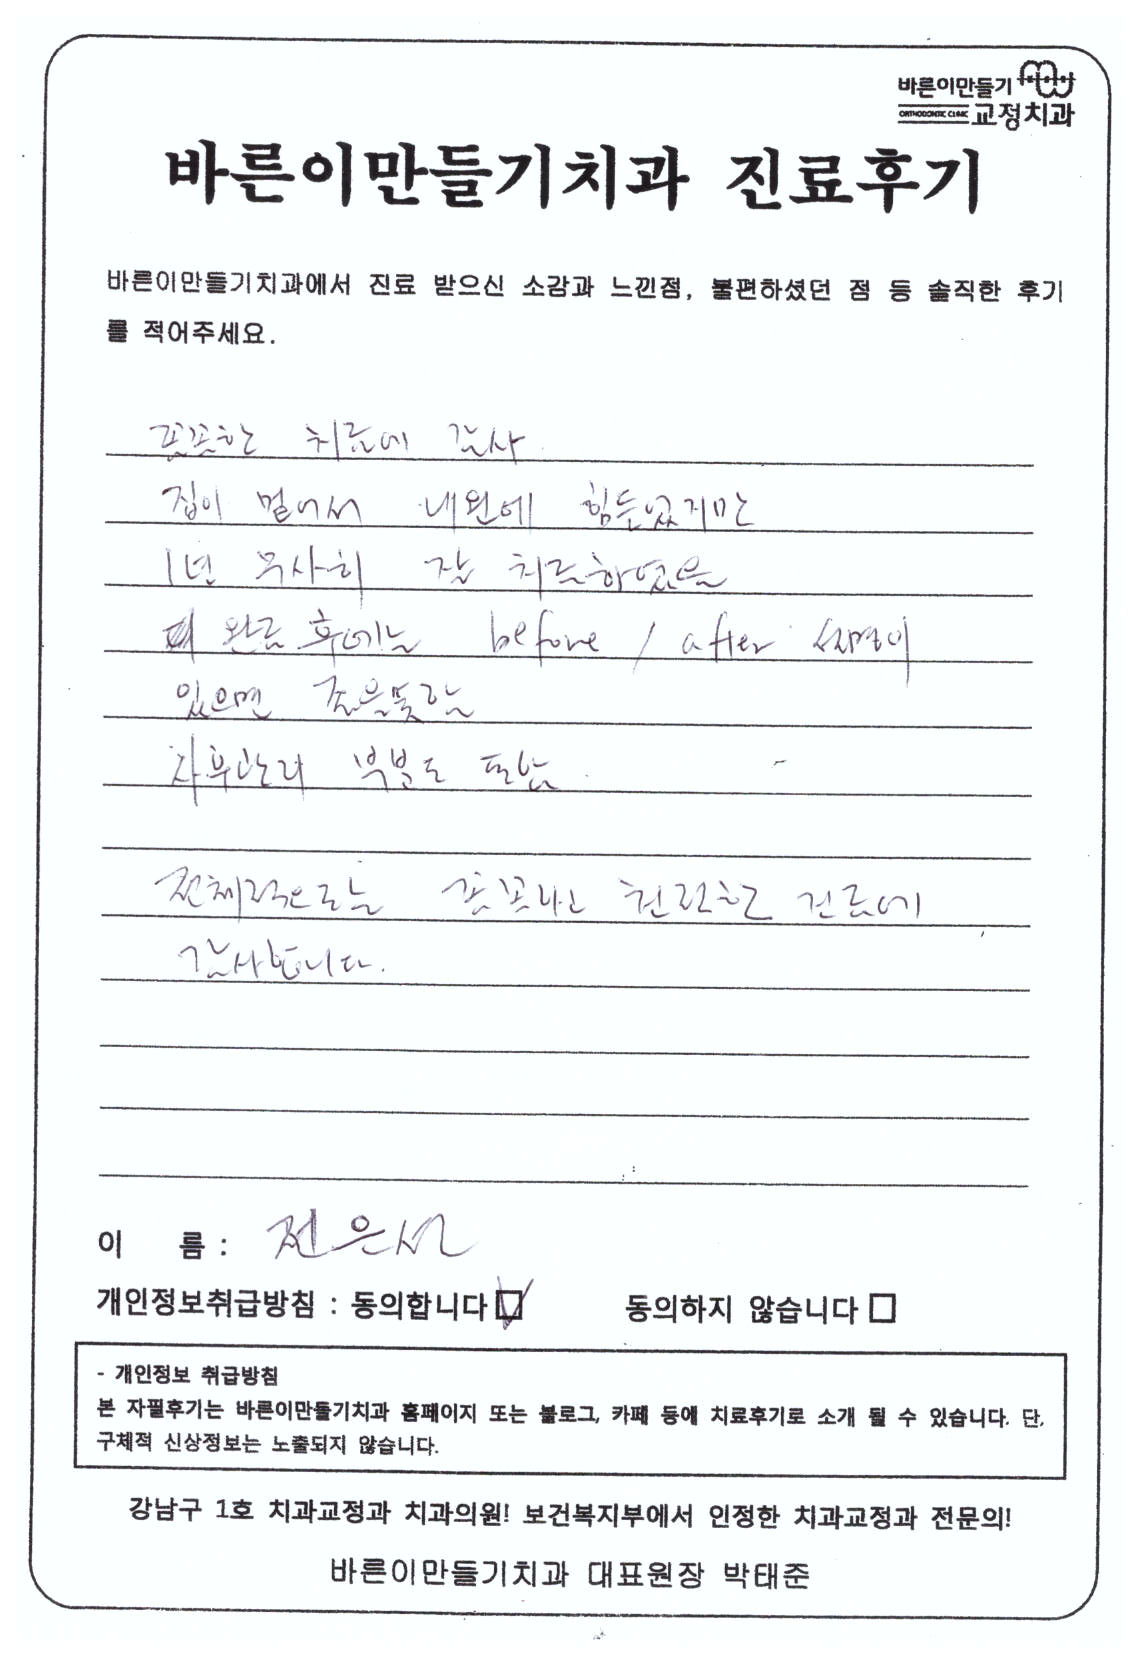 바른이만들기
ORTHODONTIC CLINIC 교정치과
바른이만들기치과 진료후기
바른이만들기치과에서 진료 받으신 소감과 느낀점, 불편하셨던 점 등 솔직한 후기
를 적어주세요.
꼼꼼한 치료에 감사.
집이 멀어서 내원에 힘들었지만
1년 무사히 잘 치료하였음
완료 후에는 before / after 설명이
있으면 좋을듯함
사후관리 부분도 포함.
전체적으로는 꼼꼼하고 친절한 진료에
감사합니다.
이 름 : 전은선
개인정보취급방침 : 동의합니다 동의하지 않습니다
- 개인정보 취급방침
본 자필후기는 바른이만들기치과 홈페이지 또는 블로그, 카페 등에 치료후기로 소개 될 수 있습니다. 단,
구체적 신상정보는 노출되지 않습니다.
강남구 1호 치과교정과 치과의원! 보건복지부에서 인정한 치과교정과 전문의!
바른이만들기치과 대표원장 박태준